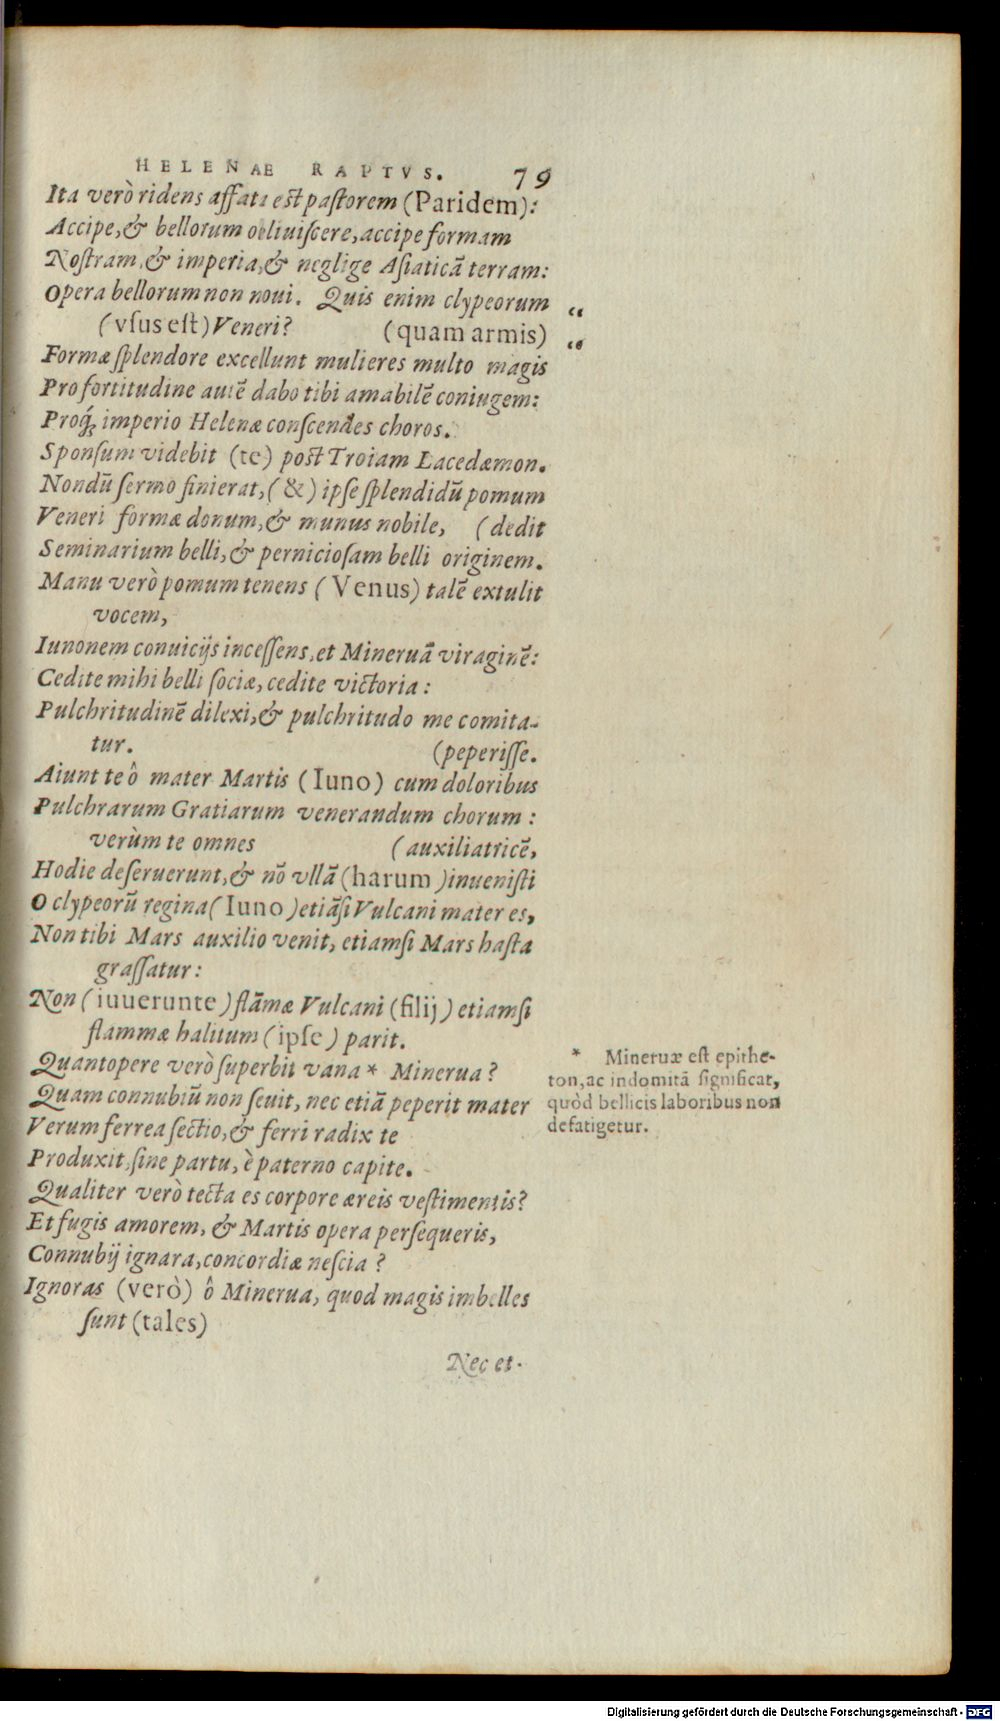 HELENAE RAPTVS. 79
Ita verò ridens affata est pastorem (Paridem):
Accipe, & bellorum obliuiscere, accipe formam
Nostram, & imperia, & neglige Asiaticā terram:
Opera bellorum non noui. Quis enim clypeorum “
(vsus est) Veneri? (quam armis) “
Formæ splendore excellunt mulieres multo magis
Pro fortitudine autē dabo tibi amabilē coniugem:
Proq́; imperio Helenæ conscendes choros.
Sponsum videbit (te) post Troiam Lacedæmon.
Nondū sermo finierat, (&) ipse splendidū pomum
Veneri formæ donum, & munus nobile, (dedit
Seminarium belli, & perniciosam belli originem.
Manu verò pomum tenens (Venus) talē extulit
vocem,
Iunonem conuicijs incessens, et Mineruā viraginē:
Cedite mihi belli sociæ, cedite victoria:
Pulchritudinē dilexi, & pulchritudo me comita-
tur. (peperisse.
Aiunt te ô mater Martis (Iuno) cum doloribus
Pulchrarum Gratiarum venerandum chorum:
verùm te omnes (auxiliatricē,
Hodie deseruerunt, & nō vllā (harum) inuenisti
O clypeorū regina (Iuno) etiāsi Vulcani mater es,
Non tibi Mars auxilio venit, etiamsi Mars hasta
grassatur:
Non (iuuerunte) flāmæ Vulcani (filij) etiamsi
flammæ halitum (ipse) parit.
Quantopere verò superbit vana * Minerua?
Quam connubiū non seuit, nec etiā peperit mater
Verum ferrea sectio, & ferri radix te
Produxit, sine partu, è paterno capite.
Qualiter verò tecta es corpore æreis vestimentis?
Et fugis amorem, & Martis opera persequeris,
Connubij ignara, concordiæ nescia?
Ignoras (verò) ô Minerua, quod magis imbelles
sunt (tales)
Nec et-
* Mineruæ est epithe-
ton, ac indomitā significat,
quòd bellicis laboribus non
defatigetur.
Digitalisierung gefördert durch die Deutsche Forschungsgemeinschaft - DFG